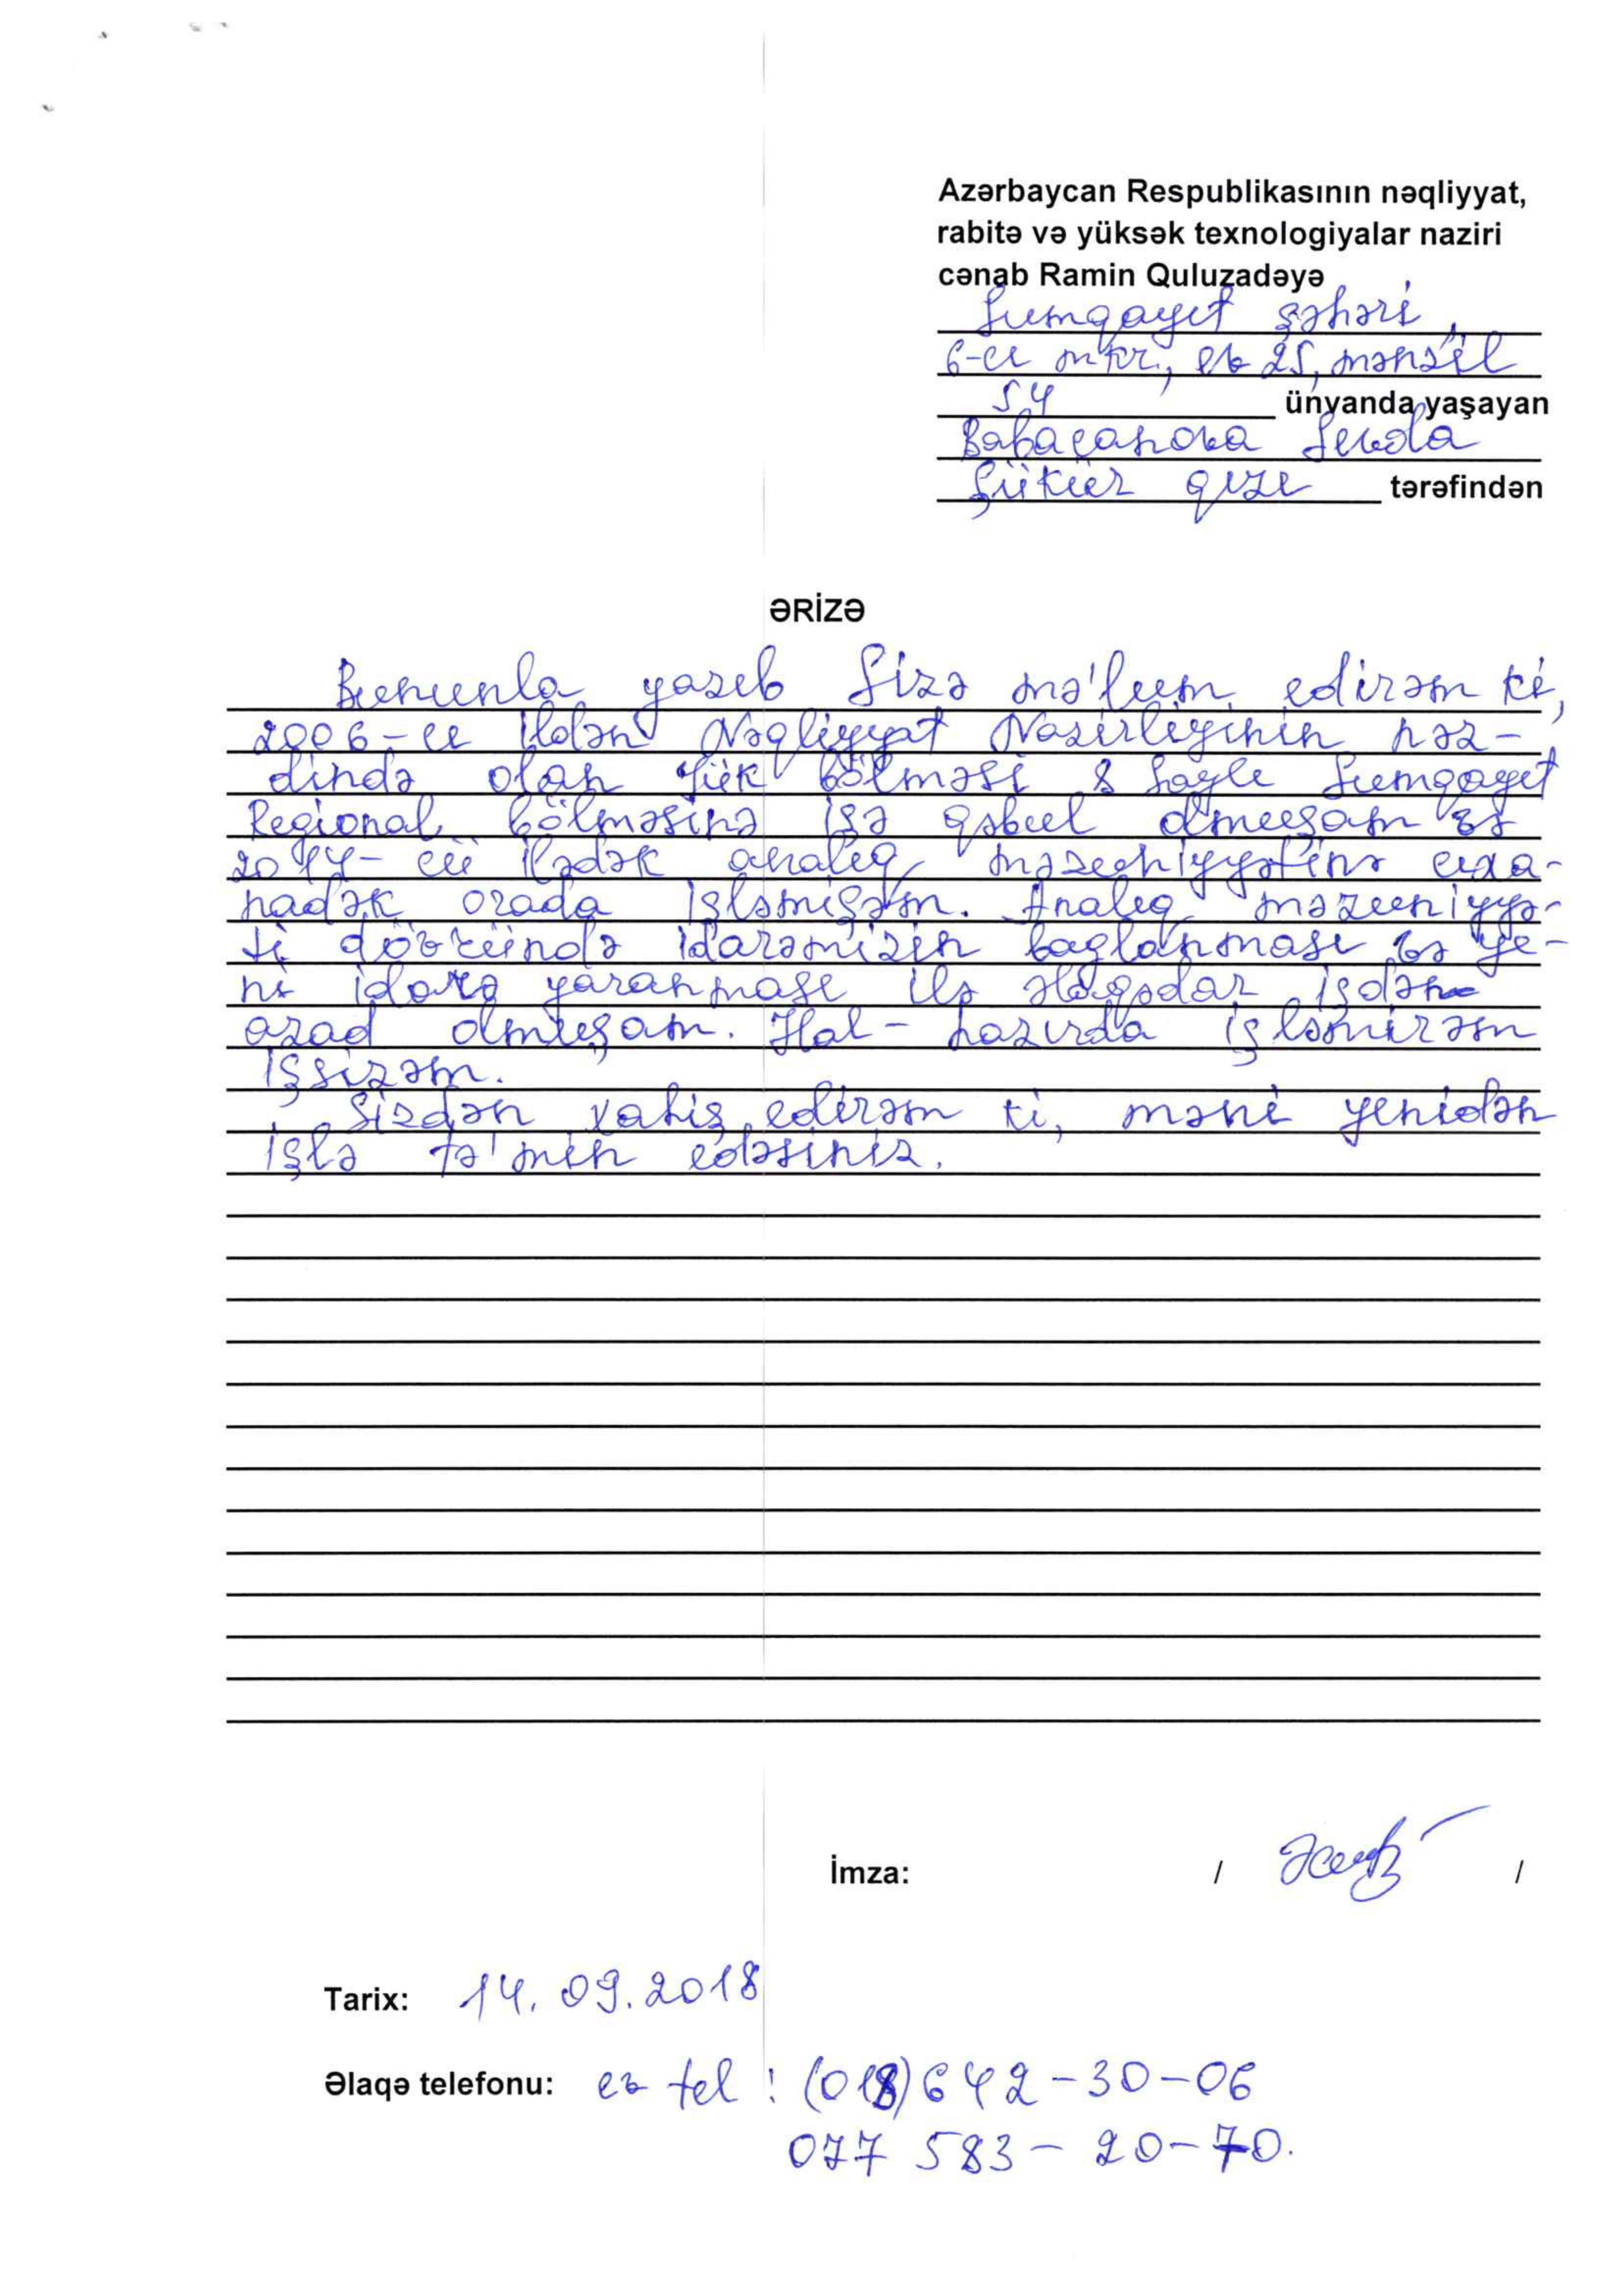 Azərbaycan Respublikasının nəqliyyat,
rabitə və yüksək texnologiyalar naziri
cənab Ramin Quluzadəyə
Sumqayıt şəhəri,
6-cı mkr., ev 25, mənzil
54 ünvanda yaşayan
Babaçanova Sevda
Şükür qızı tərəfindən
ƏRİZƏ
Bununla yazıb Sizə mə'lum edirəm ki,
2006-cı ildən Nəqliyyat Nazirliyinin nəz-
dində olan Yük bölməsi 8 saylı Sumqayıt
Regional bölməsinə işə qəbul olmuşam və
2014-cü ilədək analıq məzuniyyətinə çıxa-
nadək orada işləmişəm. Analıq məzuniyyə-
ti dövründə idarəmizin bağlanması və ye-
ni idarə yaranması ilə əlaqədar işdən
azad olmuşam. Hal-hazırda işləmirəm
işsizəm.
Sizdən xahiş edirəm ki, məni yenidən
işlə tə'min edəsiniz.
İmza: / /
Tarix: 14.09.2018
Əlaqə telefonu: ev tel: (018) 642-30-06
077 583-20-70.